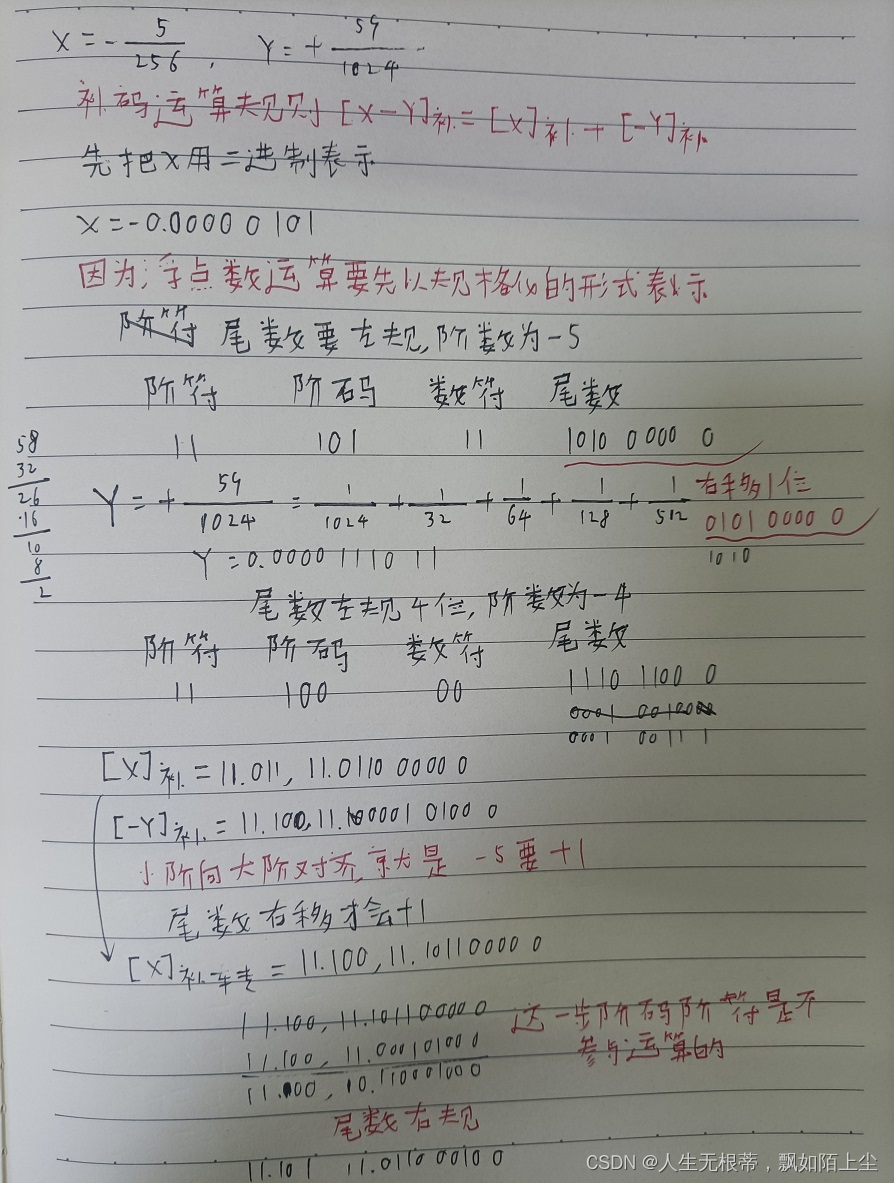 X=-5/256, Y=+59/1024
补码运算规则 [X-Y]补=[X]补+[-Y]补
先把X用二进制表示
X=-0.00000101
因为浮点数运算要先以规格化的形式表示
阶符 尾数要左规,阶数为-5
阶符 阶码 数符 尾数
11 101 11 1010 0000 0
58
32
26
16
10
8
2
Y=+59/1024=1/1024+1/32+1/64+1/128+1/512
右移1位
01010000 0
1010
Y=0.0000111011
尾数左规4位,阶数为-4
阶符 阶码 数符 尾数
11 100 00 1110 1100 0
0001 0011 1
[X]补=11.011,11.0110 0000 0
[-Y]补=11.100,11.00010100 0
小阶向大阶对齐,就是-5要+1
尾数右移才会+1
[X]补=11.100,11.10110000 0
11.100,11.10110000 0
11.100,11.00010100 0
11.100,10.11000100 0
这一步阶码阶符是不
参与运算的
尾数右规
11.101 11.0110 0010 0
CSDN @人生无根蒂，飘如陌上尘